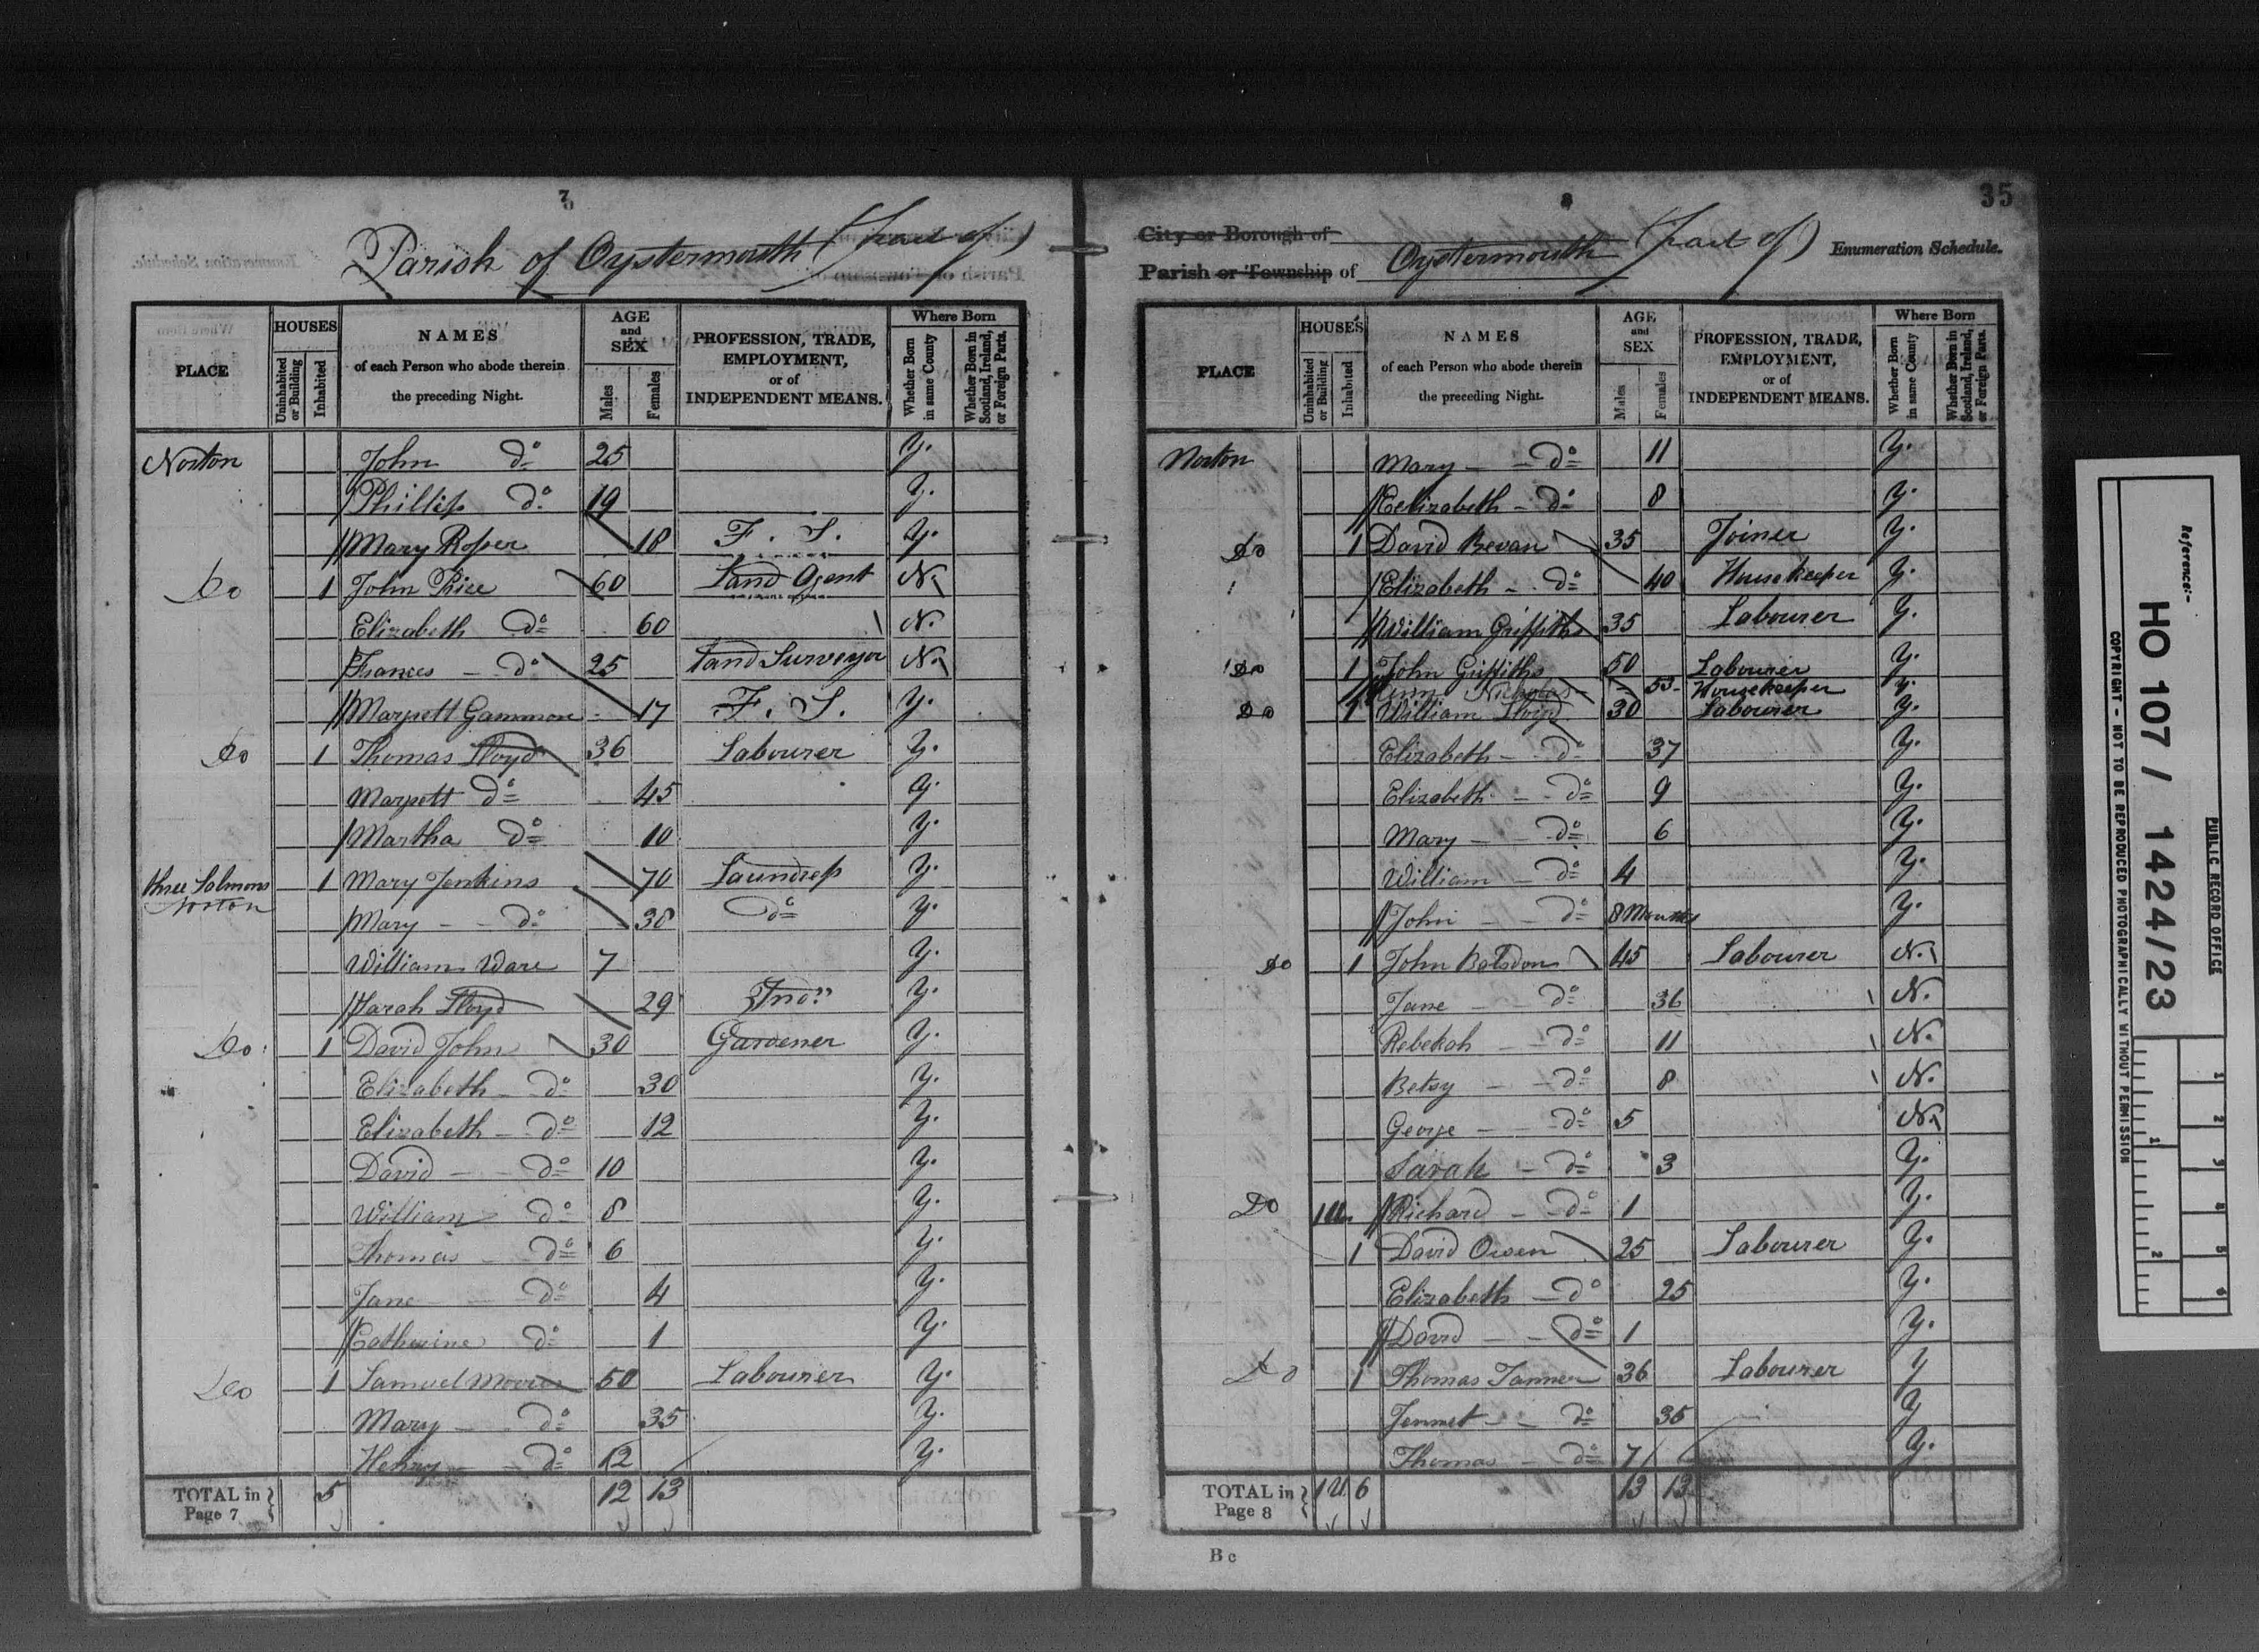 7
Parish of Oystermouth (part of)
PLACE
HOUSES
Uninhabited or Building
Inhabited
NAMES
of each Person who abode therein
the preceding Night.
AGE and SEX
Males
Females
PROFESSION, TRADE, EMPLOYMENT, or of INDEPENDENT MEANS.
Where Born
Whether Born in same County
Whether Born in Scotland, Ireland, or Foreign Parts.
Norton John do 25 y.
Phillip do 19 y.
Mary Roper 18 F. S. y.
Do 1 John Price 60 Land Agent N.
Elizabeth do 60 N.
Frances do 25 Land Surveyor N.
Margett Gammon 17 F. S. y.
Do 1 Thomas Lloyd 36 Labourer y.
Margett do 45 y.
Martha do 10 y.
three Salmons Norton 1 Mary Jenkins 70 Laundress y.
Mary do 38 do y.
William Ware 7 y.
Sarah Lloyd 29 Ind y.
Do 1 David John 30 Gardener y.
Elizabeth do 30 y.
Elizabeth do 12 y.
David do 10 y.
William do 8 y.
Thomas do 6 y.
Jane do 4 y.
Catherine do 1 y.
Do 1 Samuel 50 Labourer y.
Mary do 35 y.
Henry do 12 y.
TOTAL in Page 7 5 12 13
8
35
City or Borough of
Parish or Township of Oystermouth (part of)
Enumeration Schedule.
PLACE
HOUSES
Uninhabited or Building
Inhabited
NAMES
of each Person who abode therein
the preceding Night.
AGE and SEX
Males
Females
PROFESSION, TRADE, EMPLOYMENT, or of INDEPENDENT MEANS.
Where Born
Whether Born in same County
Whether Born in Scotland, Ireland, or Foreign Parts.
Norton Mary do 11 y.
Eelizabeth do 8 y.
Do 1 David Bevan 35 Joiner y.
Elizabeth do 40 Housekeeper y.
William Griffiths 35 Labourer y.
Do 1 John Griffiths 50 Labourer y.
Ann Nicholas 53 Housekeeper y.
Do 1 William Lloyd 30 Labourer y.
Elizabeth do 37 y.
Elizabeth do 9 y.
Mary do 6 y.
William do 4 y.
John do 8 Months y.
Do 1 John Balsdon 45 Labourer N.
Jane do 36 N.
Rebekah do 11 N.
Betsy do 8 N.
George do 5 N.
Sarah do 3 y.
Do 1U. Richard do 1 y.
1 David Owen 25 Labourer y.
Elizabeth do 25 y.
David do 1 y.
Do 1 Thomas Tanner 36 Labourer y
Jennet do 35 y
Thomas do 7 y.
TOTAL in Page 8 1U 6 13 13
B c
Reference:-
HO 107 / 1424/23
PUBLIC RECORD OFFICE
COPYRIGHT - NOT TO BE REPRODUCED PHOTOGRAPHICALLY WITHOUT PERMISSION
1
2
3
4
5
6
1
2